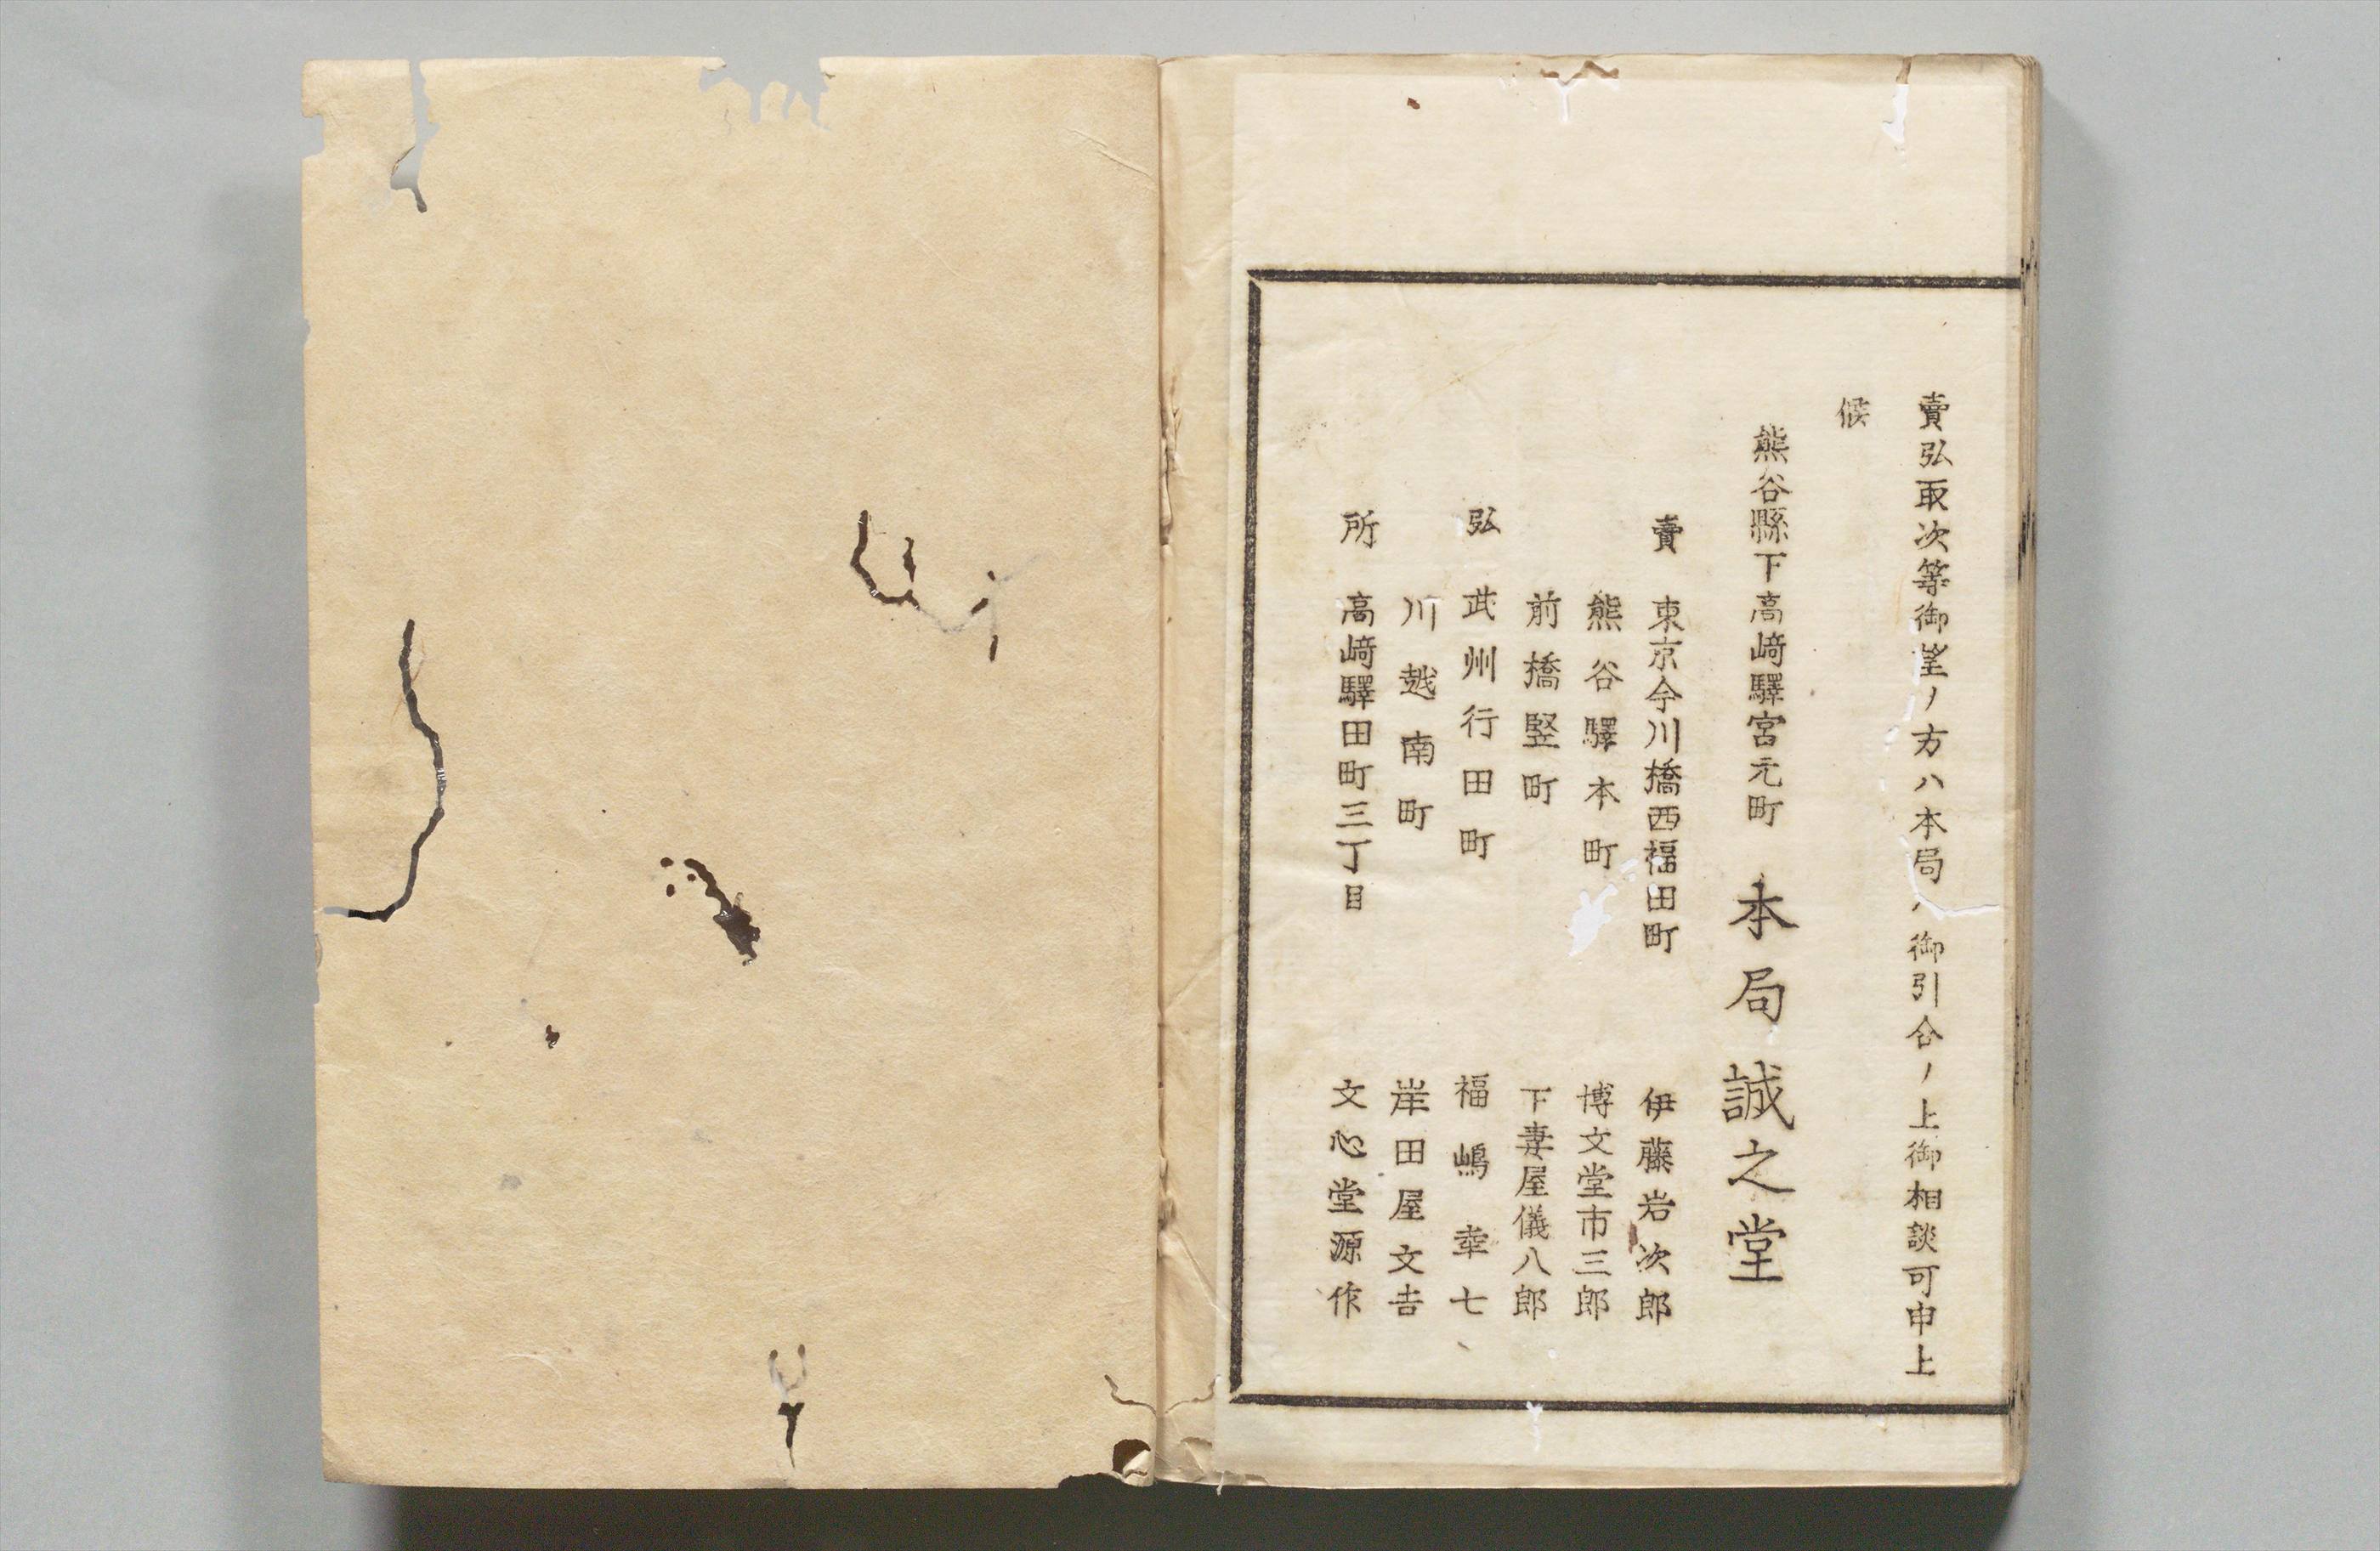 賣弘取次等御望ノ方ハ本局ヘ御引合ノ上御相談可申上
候
熊谷縣下高﨑驛宮元町 本局 誠之堂
賣 東京今川橋西福田町 伊藤岩次郎
熊谷驛本町 博文堂市三郎
前橋竪町 下妻屋儀八郎
弘 武州行田町 福嶋幸七
川越南町 岸田屋文吉
所 高﨑驛田町三丁目 文心堂源作